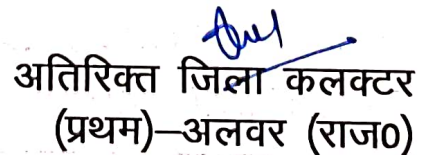 अतिरिक्त जिला कलक्टर
(प्रथम)—अलवर (राज0)